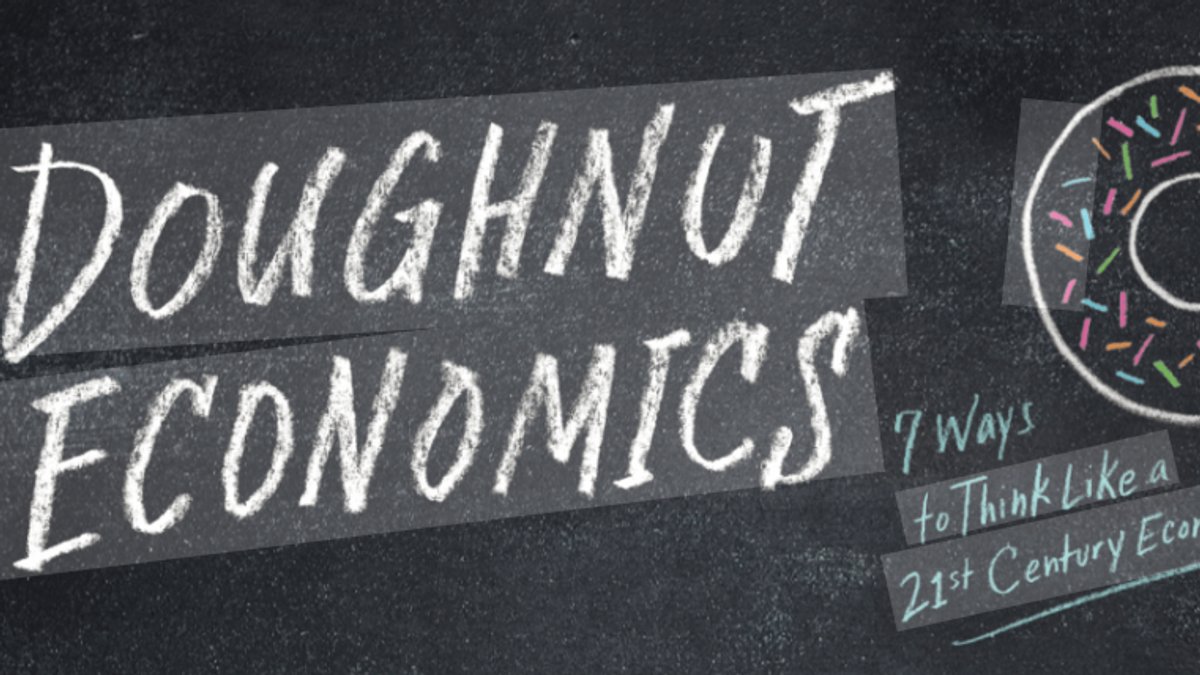 DOUGHNUT
ECONOMICS
7 Ways
to Think Like a
21st Century Econ